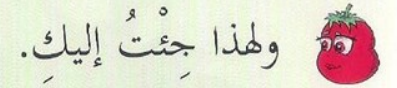 ولهذا جِئْتُ إليكِ.